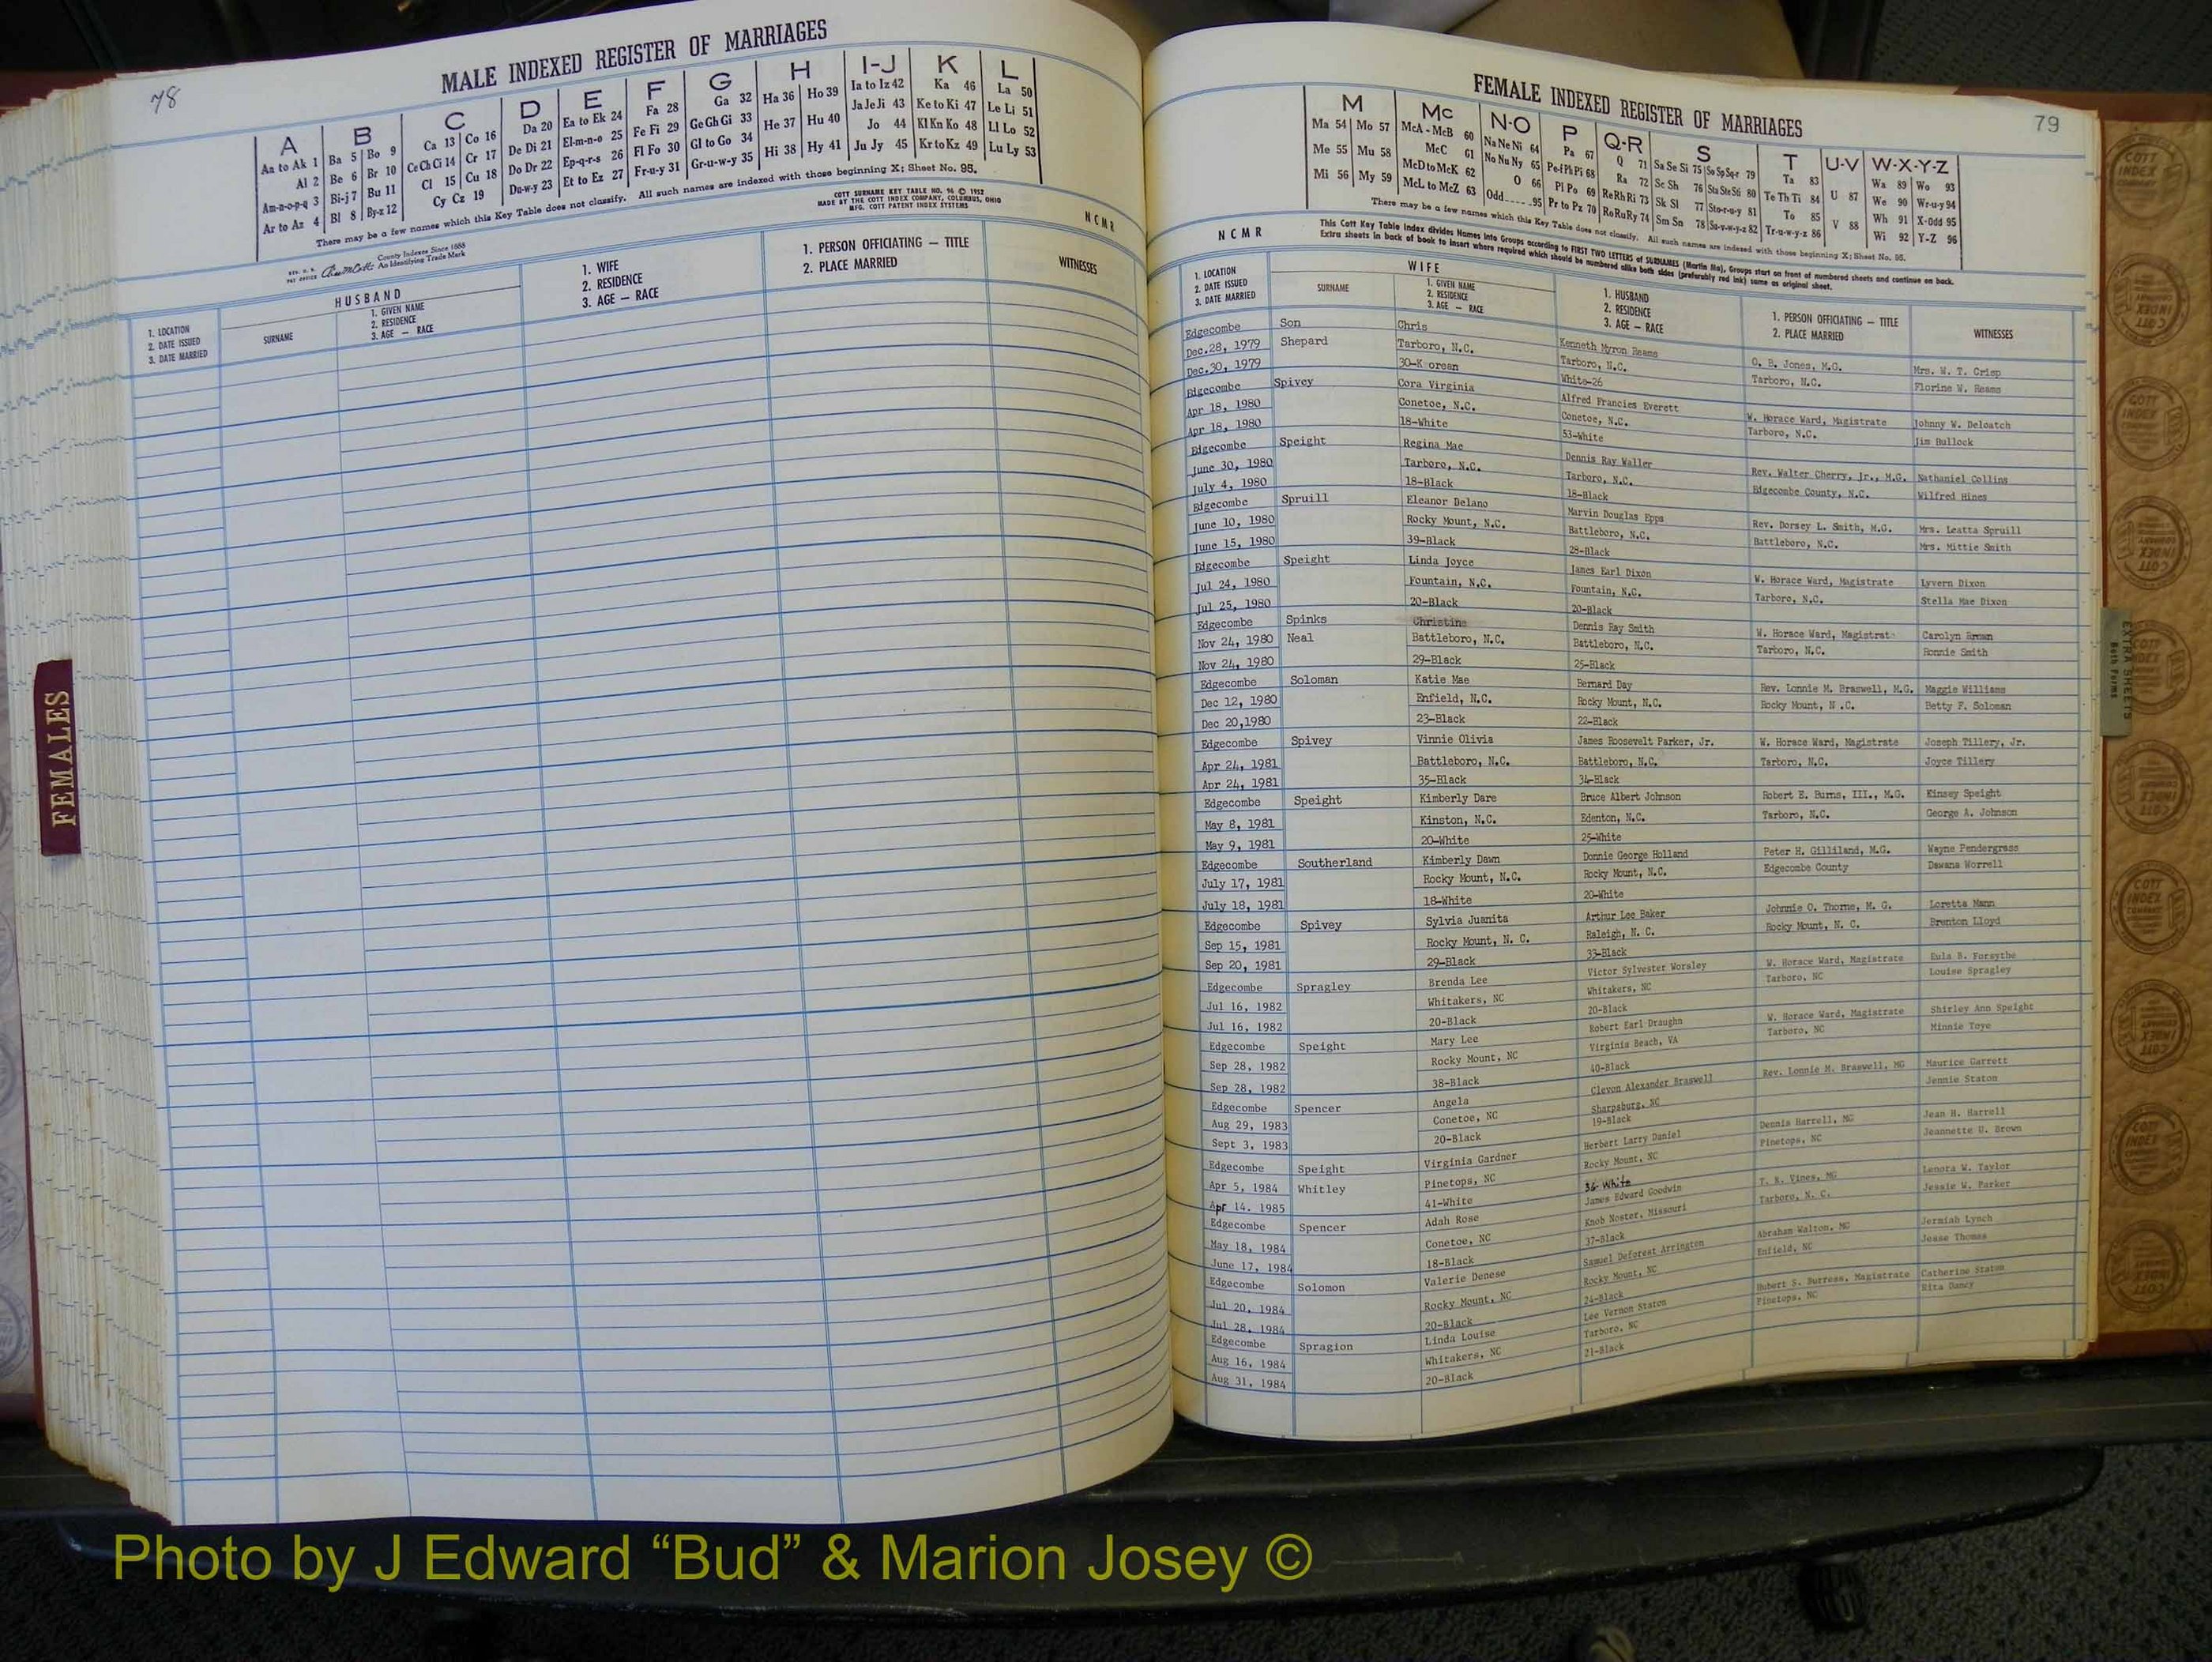 78
MALE INDEXED REGISTER OF MARRIAGES
A B C D E F G H I-J K L
Aa to Ak 1 Ba 5 Bo 9 Ca 13 Co 16 Da 20 Ea to Ek 24 Fa 28 Ga 32 Ha 36 Ho 39 Ia to Iz 42 Ka 46 La 50
Al 2 Be 6 Br 10 Ce Ch Ci 14 Cr 17 De Di 21 El-m-n-o 25 Fe Fi 29 Ge Gh Gi 33 He 37 Hu 40 Ja Je Ji 43 Ke to Ki 47 Le Li 51
Am-n-o-p-q 3 Bi-j 7 Bu 11 Cl 15 Cu 18 Do Dr 22 Ep-q-r-s 26 Fl Fo 30 Gl to Go 34 Hi 38 Hy 41 Jo 44 Kl Kn Ko 48 Ll Lo 52
Ar to Az 4 Bl 8 By-z 12 Cy Cz 19 Du-w-y 23 Et to Ez 27 Fr-u-y 31 Gr-u-w-y 35 Ju Jy 45 Kr to Kz 49 Lu Ly 53
There may be a few names which this Key Table does not classify. All such names are indexed with those beginning X; Sheet No. 95.
County Indexes Since 1888
An Identifying Trade Mark
COTT SURNAME KEY TABLE NO. 96 © 1952
MADE BY THE COTT INDEX COMPANY, COLUMBUS, OHIO
MFG. COTT PATENT INDEX SYSTEMS
N C M R
1. LOCATION
2. DATE ISSUED
3. DATE MARRIED
HUSBAND
SURNAME
1. GIVEN NAME
2. RESIDENCE
3. AGE — RACE
1. WIFE
2. RESIDENCE
3. AGE — RACE
1. PERSON OFFICIATING — TITLE
2. PLACE MARRIED
WITNESSES
FEMALES
FEMALE INDEXED REGISTER OF MARRIAGES
79
M Mc N-O P Q-R S T U-V W-X-Y-Z
Ma 54 Mo 57 McA - McB 60 Na Ne Ni 64 Pa 67 Q 71 Sa Se Si 75 So Sp Sq-r 79 Ta 83 U 87 Wa 89 Wo 93
Me 55 Mu 58 McC 61 No Nu Ny 65 Pe-f Ph Pi 68 Ra 72 Sc Sh 76 Sta Ste Sti 80 Te Th Ti 84 V 88 We 90 Wr-u-y 94
Mi 56 My 59 McD to McK 62 O 66 Pl Po 69 Re Rh Ri 73 Sk Sl 77 Sto-r-u-y 81 To 85 Wh 91 X-Odd 95
McL to McZ 63 Odd 95 Pr to Pz 70 Ro Ru Ry 74 Sm Sn 78 Su-v-w-y-z 82 Tr-u-w-y-z 86 Wi 92 Y-Z 96
There may be a few names which this Key Table does not classify. All such names are indexed with those beginning X; Sheet No. 95.
N C M R
This Cott Key Table Index divides Names into Groups according to FIRST TWO LETTERS of SURNAMES (Martin Ma), Groups start on front of numbered sheets and continue on back.
Extra sheets in back of book to insert where required which should be numbered alike both sides (preferably red ink) same as original sheet.
1. LOCATION
2. DATE ISSUED
3. DATE MARRIED
WIFE
SURNAME
1. GIVEN NAME
2. RESIDENCE
3. AGE — RACE
1. HUSBAND
2. RESIDENCE
3. AGE — RACE
1. PERSON OFFICIATING — TITLE
2. PLACE MARRIED
WITNESSES
Edgecombe Son Chris Kenneth Myron Reams O. B. Jones, M.G. Mrs. W. T. Crisp
Dec.28, 1979 Shepard Tarboro, N.C. Tarboro, N.C. Tarboro, N.C. Florine W. Reams
Dec.30, 1979 30-K orean White-26
Edgecombe Spivey Cora Virginia Alfred Francies Everett W. Horace Ward, Magistrate Johnny W. Deloatch
Apr 18, 1980 Conetoe, N.C. Conetoe, N.C. Tarboro, N.C. Jim Bullock
Apr 18, 1980 18-White 53-White
Edgecombe Speight Regina Mae Dennis Ray Waller Rev. Walter Cherry, Jr., M.G. Nathaniel Collins
June 30, 1980 Tarboro, N.C. Tarboro, N.C. Edgecombe County, N.C. Wilfred Hines
July 4, 1980 18-Black 18-Black
Edgecombe Spruill Eleanor Delano Marvin Douglas Epps Rev. Dorsey L. Smith, M.G. Mrs. Leatta Spruill
June 10, 1980 Rocky Mount, N.C. Battleboro, N.C. Battleboro, N.C. Mrs. Mittie Smith
June 15, 1980 39-Black 28-Black
Edgecombe Speight Linda Joyce James Earl Dixon W. Horace Ward, Magistrate Lyvern Dixon
Jul 24, 1980 Fountain, N.C. Fountain, N.C. Tarboro, N.C. Stella Mae Dixon
Jul 25, 1980 20-Black 20-Black
Edgecombe Spinks Christine Dennis Ray Smith W. Horace Ward, Magistrat Carolyn Brown
Nov 24, 1980 Neal Battleboro, N.C. Battleboro, N.C. Tarboro, N.C. Ronnie Smith
Nov 24, 1980 29-Black 25-Black
Edgecombe Soloman Katie Mae Bernard Day Rev. Lonnie M. Braswell, M.G. Maggie Williams
Dec 12, 1980 Enfield, N.C. Rocky Mount, N.C. Rocky Mount, N .C. Betty F. Soloman
Dec 20,1980 23-Black 22-Black
Edgecombe Spivey Vinnie Olivia James Roosevelt Parker, Jr. W. Horace Ward, Magistrate Joseph Tillery, Jr.
Apr 24, 1981 Battleboro, N.C. Battleboro, N.C. Tarboro, N.C. Joyce Tillery
Apr 24, 1981 35-Black 34-Black
Edgecombe Speight Kimberly Dare Bruce Albert Johnson Robert E. Burns, III., M.G. Kinsey Speight
May 8, 1981 Kinston, N.C. Edenton, N.C. Tarboro, N.C. George A. Johnson
May 9, 1981 20-White 25-White
Edgecombe Southerland Kimberly Dawn Donnie George Holland Peter H. Gilliland, M.G. Wayne Pendergrass
July 17, 1981 Rocky Mount, N.C. Rocky Mount, N.C. Edgecombe County Dawana Worrell
July 18, 1981 18-White 20-White
Edgecombe Spivey Sylvia Juanita Arthur Lee Baker Johnnie O. Thorne, M. G. Loretta Mann
Sep 15, 1981 Rocky Mount, N. C. Raleigh, N. C. Rocky Mount, N. C. Brenton Lloyd
Sep 20, 1981 29-Black 33-Black
Edgecombe Spragley Brenda Lee Victor Sylvester Worsley W. Horace Ward, Magistrate Eula B. Forsythe
Jul 16, 1982 Whitakers, NC Whitakers, NC Tarboro, NC Louise Spragley
Jul 16, 1982 20-Black 20-Black
Edgecombe Speight Mary Lee Robert Earl Draughn W. Horace Ward, Magistrate Shirley Ann Speight
Sep 28, 1982 Rocky Mount, NC Virginia Beach, VA Tarboro, NC Minnie Toye
Sep 28, 1982 38-Black 40-Black
Edgecombe Spencer Angela Clevon Alexander Braswell Rev. Lonnie M. Braswell, MG Maurice Garrett
Aug 29, 1983 Conetoe, NC Sharpsburg, NC Jennie Staton
Sept 3, 1983 20-Black 19-Black
Edgecombe Speight Virginia Gardner Herbert Larry Daniel Dennis Harrell, MG Jean H. Harrell
Apr 5, 1984 Whitley Pinetops, NC Rocky Mount, NC Pinetops, NC Jeannette U. Brown
Apr 14. 1985 41-White 36-White
Edgecombe Spencer Adah Rose James Edward Goodwin T. R. Vines, MG Lenora W. Taylor
May 18, 1984 Conetoe, NC Knob Noster, Missouri Tarboro, N. C. Jessie W. Parker
June 17, 1984 18-Black 37-Black
Edgecombe Solomon Valerie Denese Samuel Deforest Arrington Abraham Walton, MG Jermiah Lynch
Jul 20, 1984 Rocky Mount, NC Rocky Mount, NC Enfield, NC Jesse Thomas
Jul 28, 1984 20-Black 24-Black
Edgecombe Spragion Linda Louise Lee Vernon Staton Hubert S. Burress, Magistrate Catherine Staton
Aug 16, 1984 Whitakers, NC Tarboro, NC Pinetops, NC Rita Dancy
Aug 31, 1984 20-Black 21-Black
EXTRA SHEETS
Both Forms
COTT
INDEX
COMPANY
Photo by J Edward “Bud” & Marion Josey ©